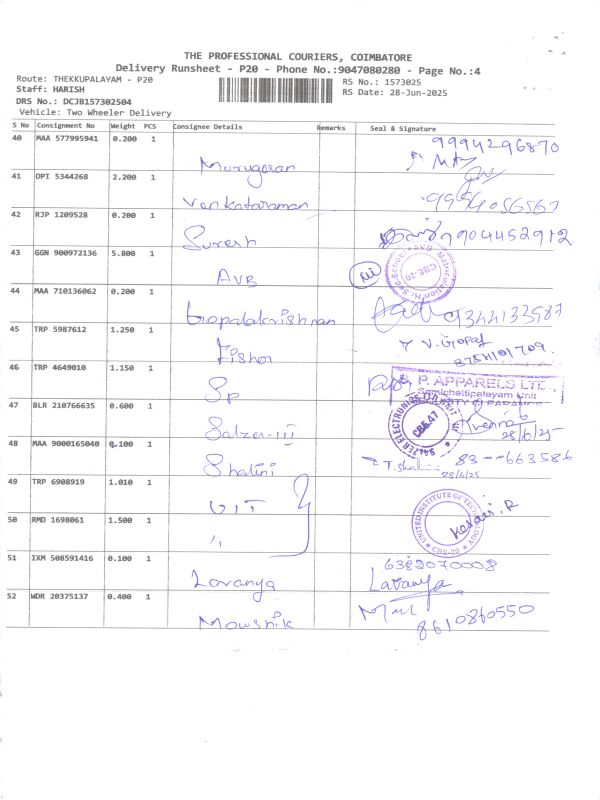 THE PROFESSIONAL COURIERS, COIMBATORE
Delivery Runsheet - P20 - Phone No.:9047080280 - Page No.:4
Route: THEKKUPALAYAM - P20
RS No.: 1573025
Staff: HARISH
RS Date: 28-Jun-2025
DRS No.: DCJB157302504
Vehicle: Two Wheeler Delivery
S No Consignment No Weight PCS Consignee Details Remarks Seal & Signature
40 MAA 577995941 0.200 1 Murugesan 9994296870
41 DPI 5344268 2.200 1 Venkataraman 9994056567
42 RJP 1209528 0.200 1 Suresh 9044452912
43 GGN 900972136 5.800 1 AVB
CBE-20
44 MAA 710136062 0.200 1 Gopalakrishnan 9344133587
45 TRP 5987612 1.250 1 Kishor V. Gopal
46 TRP 4649010 1.150 1 SP
P. APPARELS LTD.,
Samichettipalayam Unit
47 BLR 210766635 0.600 1 Salzer-III
SALZER ELECTRONICS LTD UNIT
CBE-47
28/6/25
48 MAA 9000165040 0.100 1 Shalini 83--663586
28/6/25
49 TRP 6908919 1.010 1 UIT
50 RMD 1698061 1.500 1 ,,
UNITED INSTITUTE OF TECHNOLOGY
CBE-20
51 IXM 508591416 0.100 1 Lavanya 6382070008
Lavanya
52 WDR 20375137 0.400 1 Mowshik 8610860550